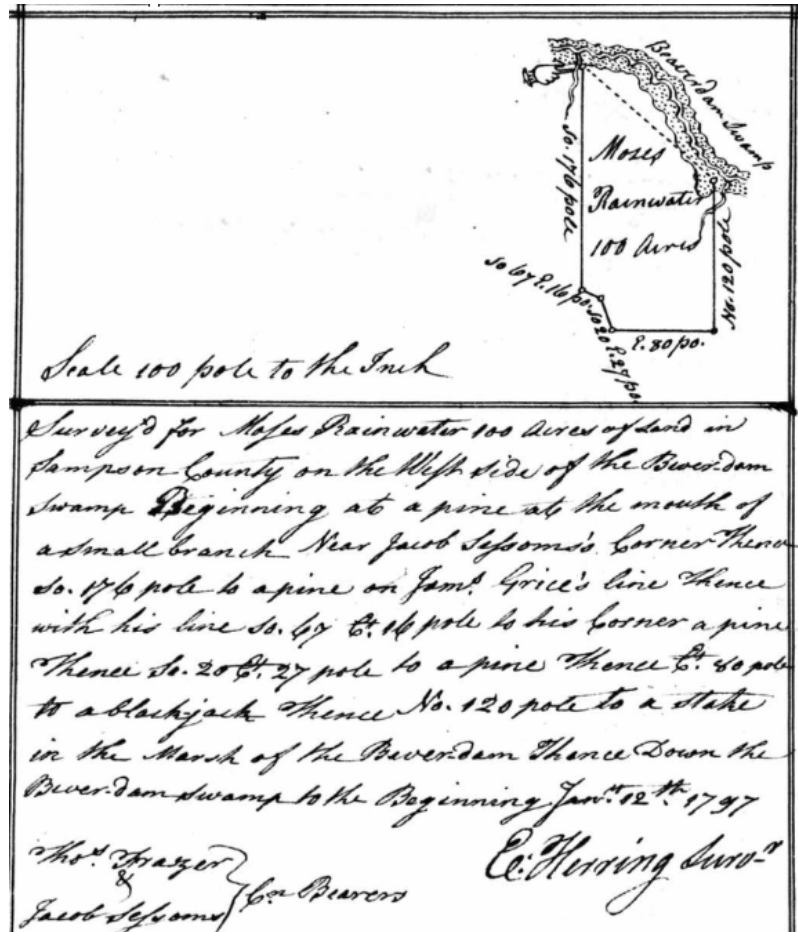 Beaverdam Swamp
Moses
Rainwater
100 Acres
So. 176 pole
So 67 E. 16 po.
So 20 E. 27 po.
E. 80 po.
No. 120 pole
Scale 100 pole to the Inch
Survey'd for Moses Rainwater 100 Acres of Land in
Sampson County on the West side of the Bever-dam
swamp Beginning at a pine at the mouth of
a small branch Near Jacob Sessoms's Corner Thence
So. 176 pole to a pine on Jams. Grice's line Thence
with his line So. 67 Et. 16 pole to his Corner a pine
Thence So. 20 Et. 27 pole to a pine Thence Et. 80 pole
to a blackjack Thence No. 120 pole to a stake
in the Marsh of the Bever-dam Thence Down the
Bever-dam swamp to the Beginning 12th 1797
Thos. Frazer
&
Jacob Sessoms
Cn Bearers
E: Herring Survr